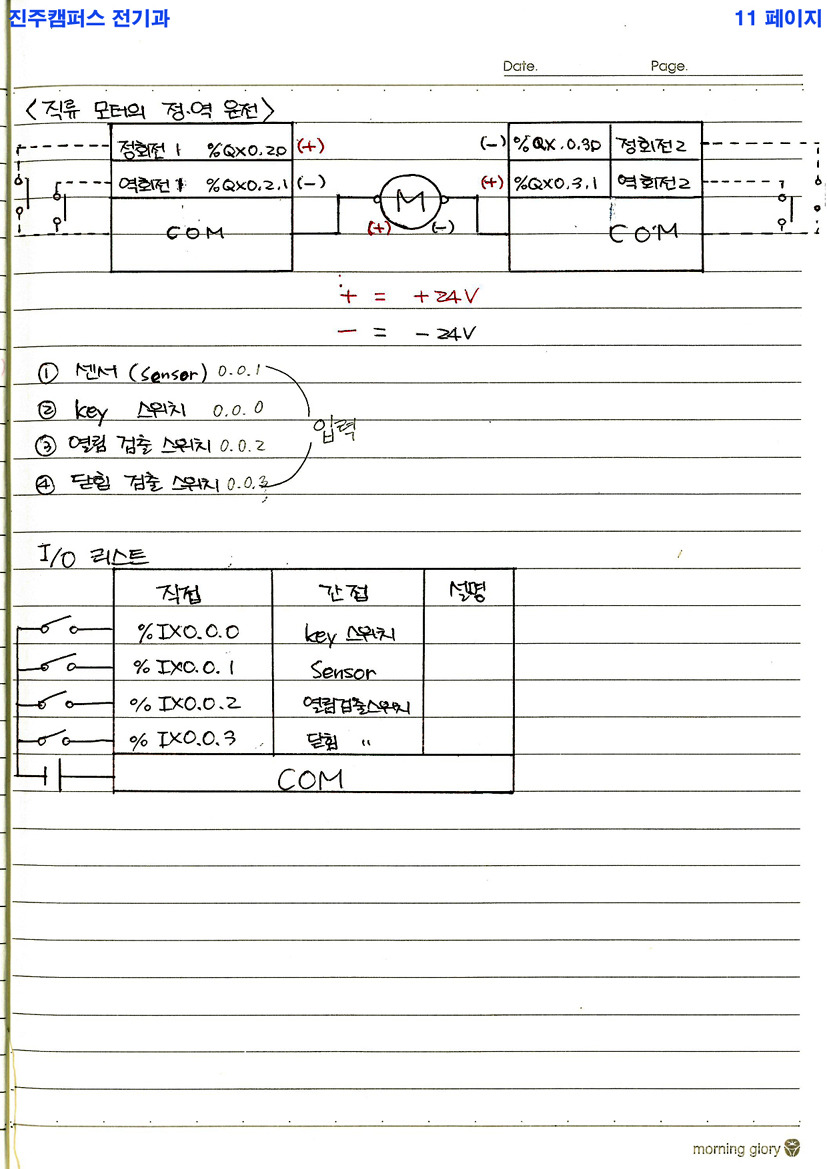 진주캠퍼스 전기과 11 페이지
Date. Page.
<직류 모터의 정·역 운전>
정회전 1 %QX0.2.0 (+) (-) %QX.0.30 정회전2
역회전 1 %QX0.2.1 (-) (+) %QX0.3.1 역회전2
M
COM (+) (-) COM
+ = +24V
- = -24V
① 센서 (sensor) 0.0.1
② key 스위치 0.0.0
입력
③ 열림 검출 스위치 0.0.2
④ 닫힘 검출 스위치 0.0.3
I/O 리스트
직접 간접 설명
%IX0.0.0 key 스위치
%IX0.0.1 Sensor
%IX0.0.2 열림검출스위치
%IX0.0.3 닫힘 〃
COM
morning glory